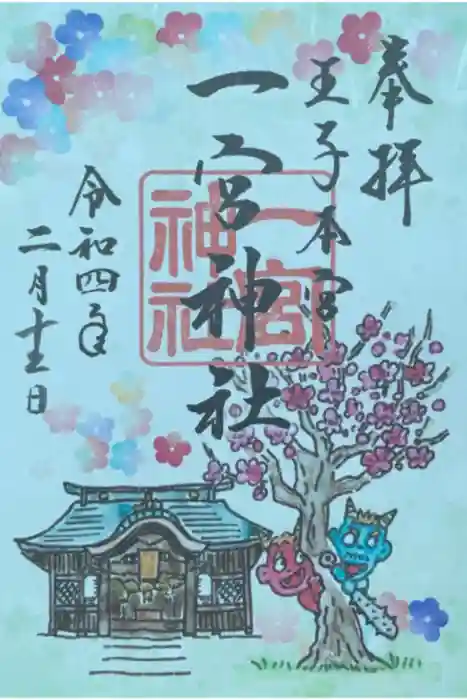 奉拝
王子本宮
一宮神社
一宮
神社
令和四年
二月十五日